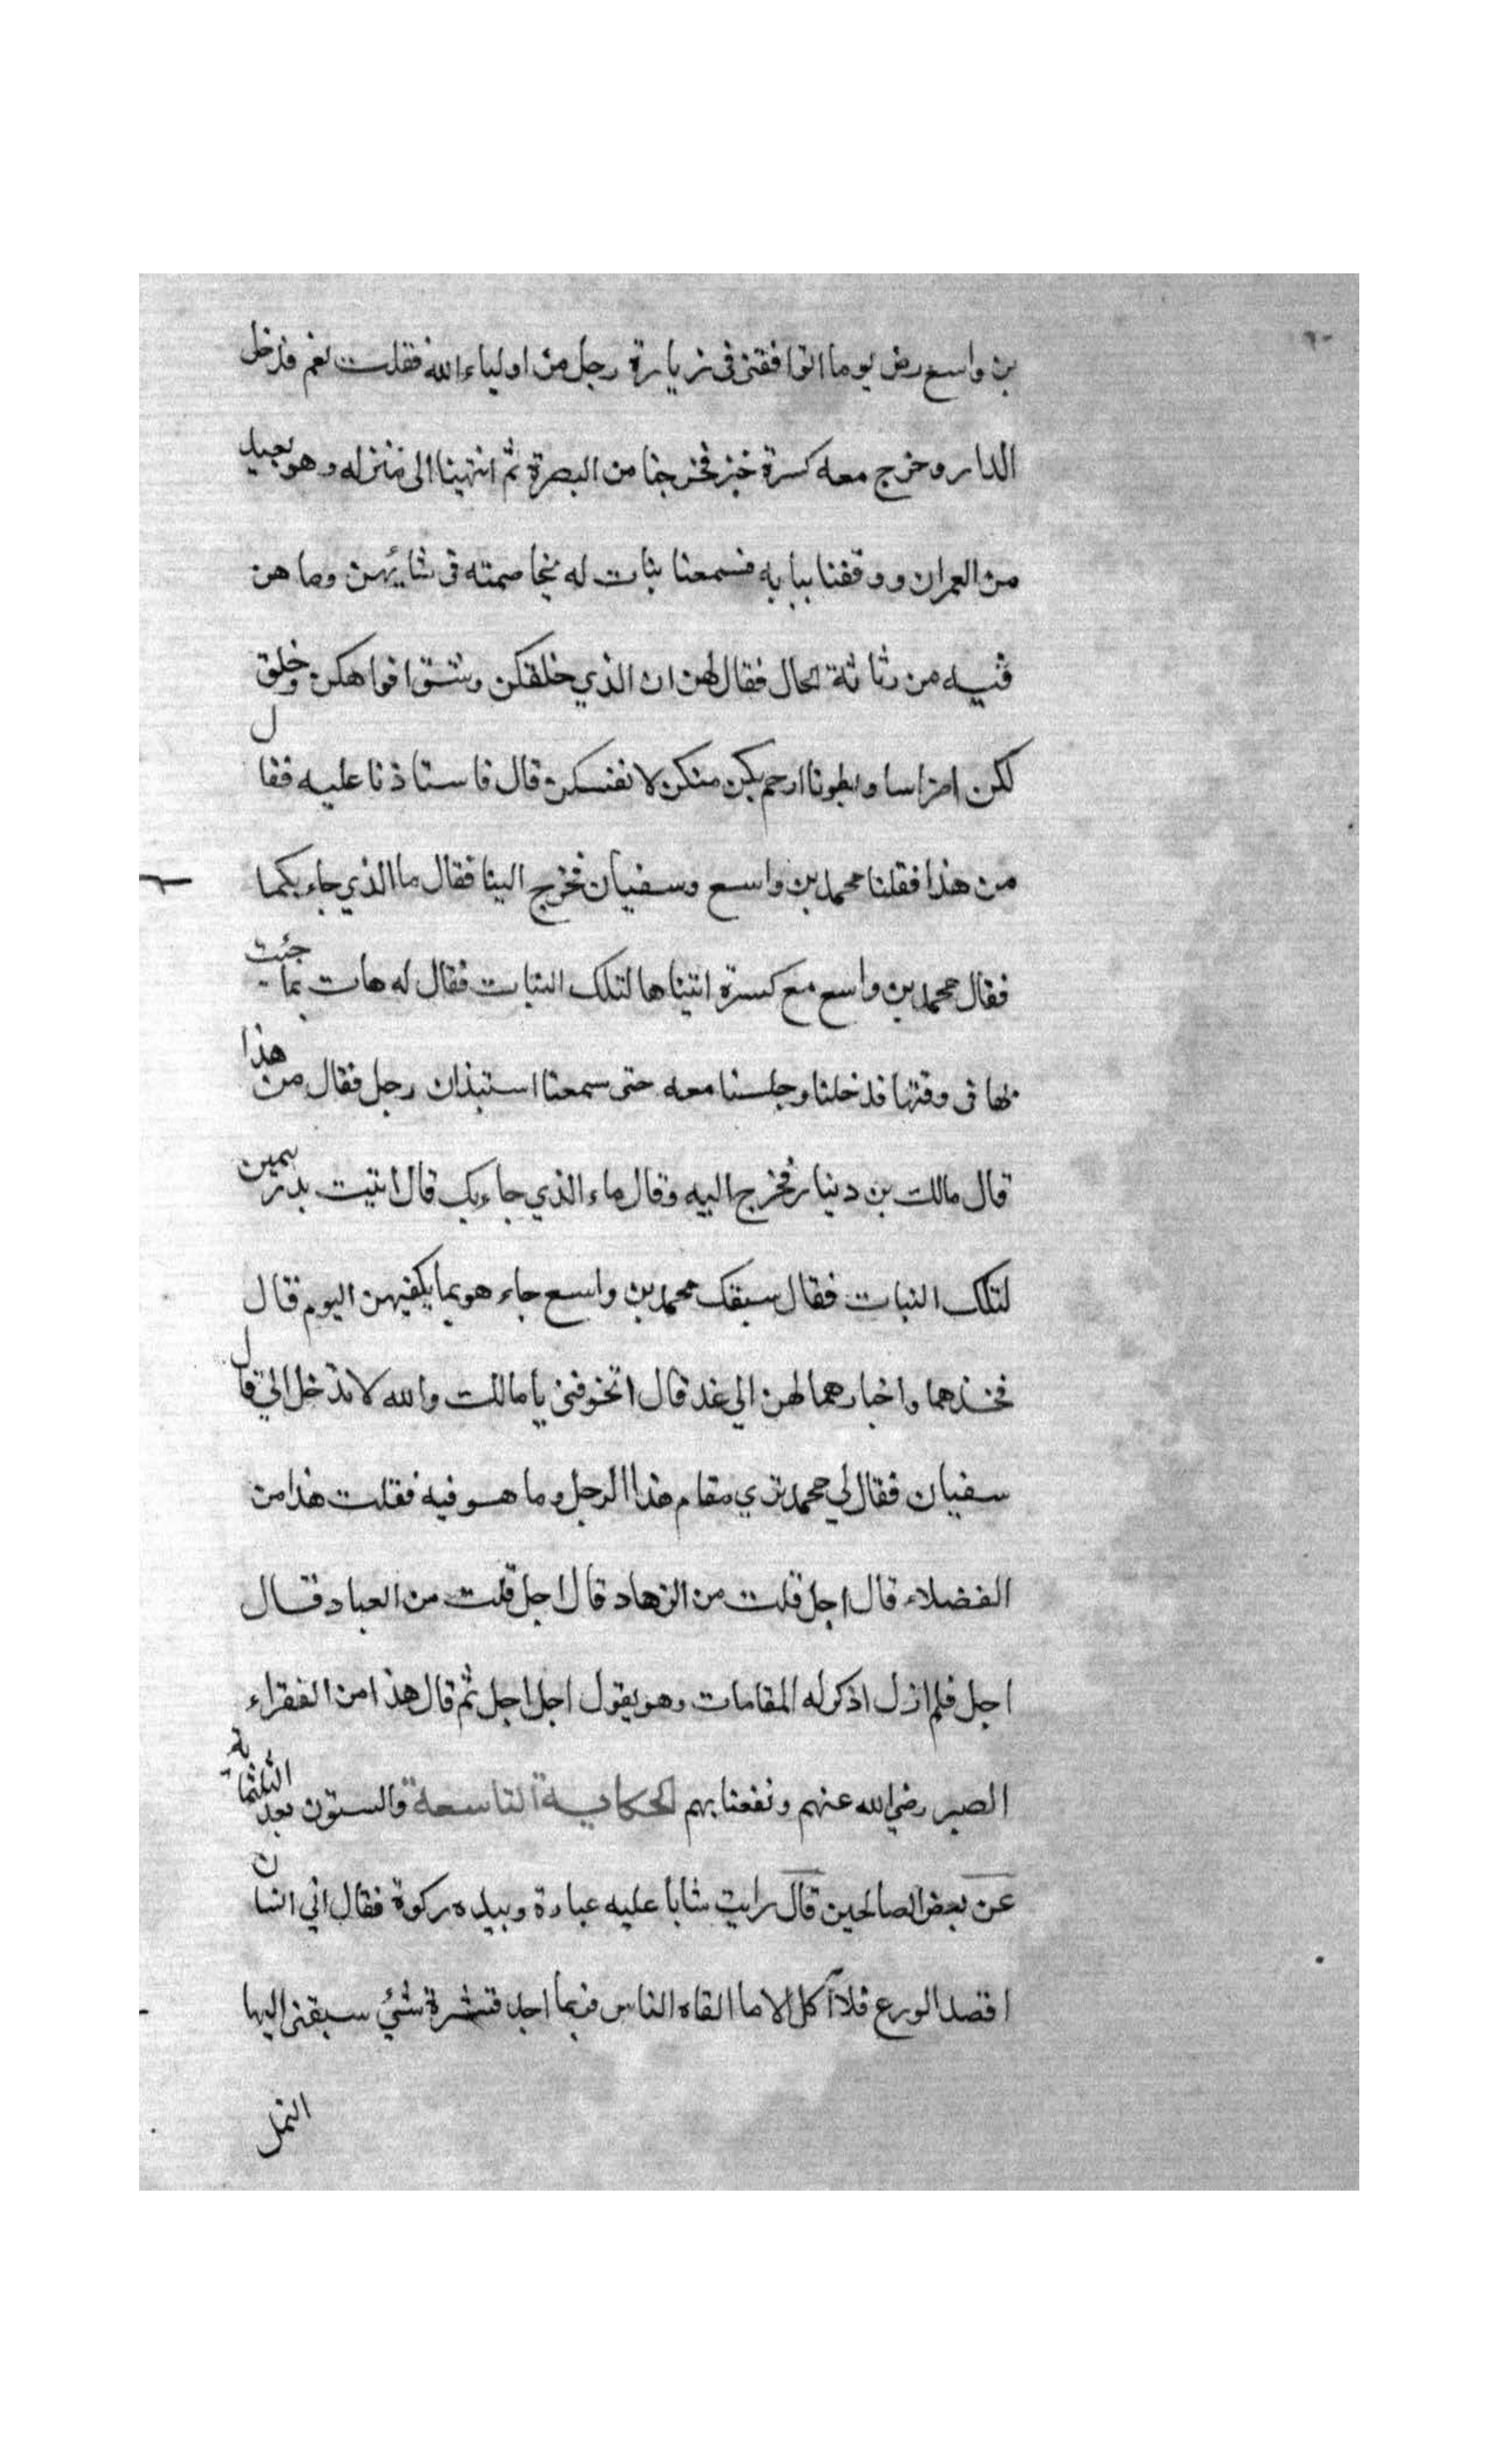 بن واسع رض يوما اتوافقني في زيارة رجل من اولياء الله فقلت نعم فدخل
الدار وخرج معه كسرة خبز فخرجنا من البصرة ثم انتهينا الى منزله وهو بعيد
من العمران ووقفنا ببابه فسمعنا بنات له يخاصمته في شايهن وما هن
فيه من رثاثة الحال فقال لهن ان الذي خلقكن وشق افواهكن وخلق
لكن اضراسا وبطونا ارحم بكن منكن لانفسكن قال فاستاذنا عليه فقال
من هذا فقلنا محمد بن واسع وسفيان فخرج الينا فقال ما الذي جاء بكما
فقال محمد بن واسع مع كسرة اتيناها لتلك البنات فقال له هات بما جئت
بها في وقتها فدخلنا وجلسنا معه حتى سمعنا استيذان رجل فقال من هذا
قال مالك بن دينار فخرج اليه وقال ماء الذي جاء بك قال اتيت بدرهمين
لتلك البنات فقال سبقك محمد بن واسع جاء هو بما يكفيهن اليوم قال
فخذهما واخبارهما لهن الي غد قال اتخوفني يا مالك والله لا تدخل الي قال
سفيان فقال لي محمد تري مقام هذا الرجل وما هو فيه فقلت هذا من
الفضلاء قال اجل قلت من الزهاد قال اجل قلت من العباد قال
اجل فلم ازل اذكر له المقامات وهو يقول اجل اجل ثم قال هذا من الفقراء
الصبر رضي الله عنهم ونفعنا بهم الحكاية التاسعة والستون بعد الثلثمايه
عن بعض الصالحين قال رايت شابا عليه عباءة وبيده ركوة فقال اني انسان
اقصد الورع فلا آكل الا ما القاه الناس فربما اجد قشرة شئ سبقني اليها
النمل